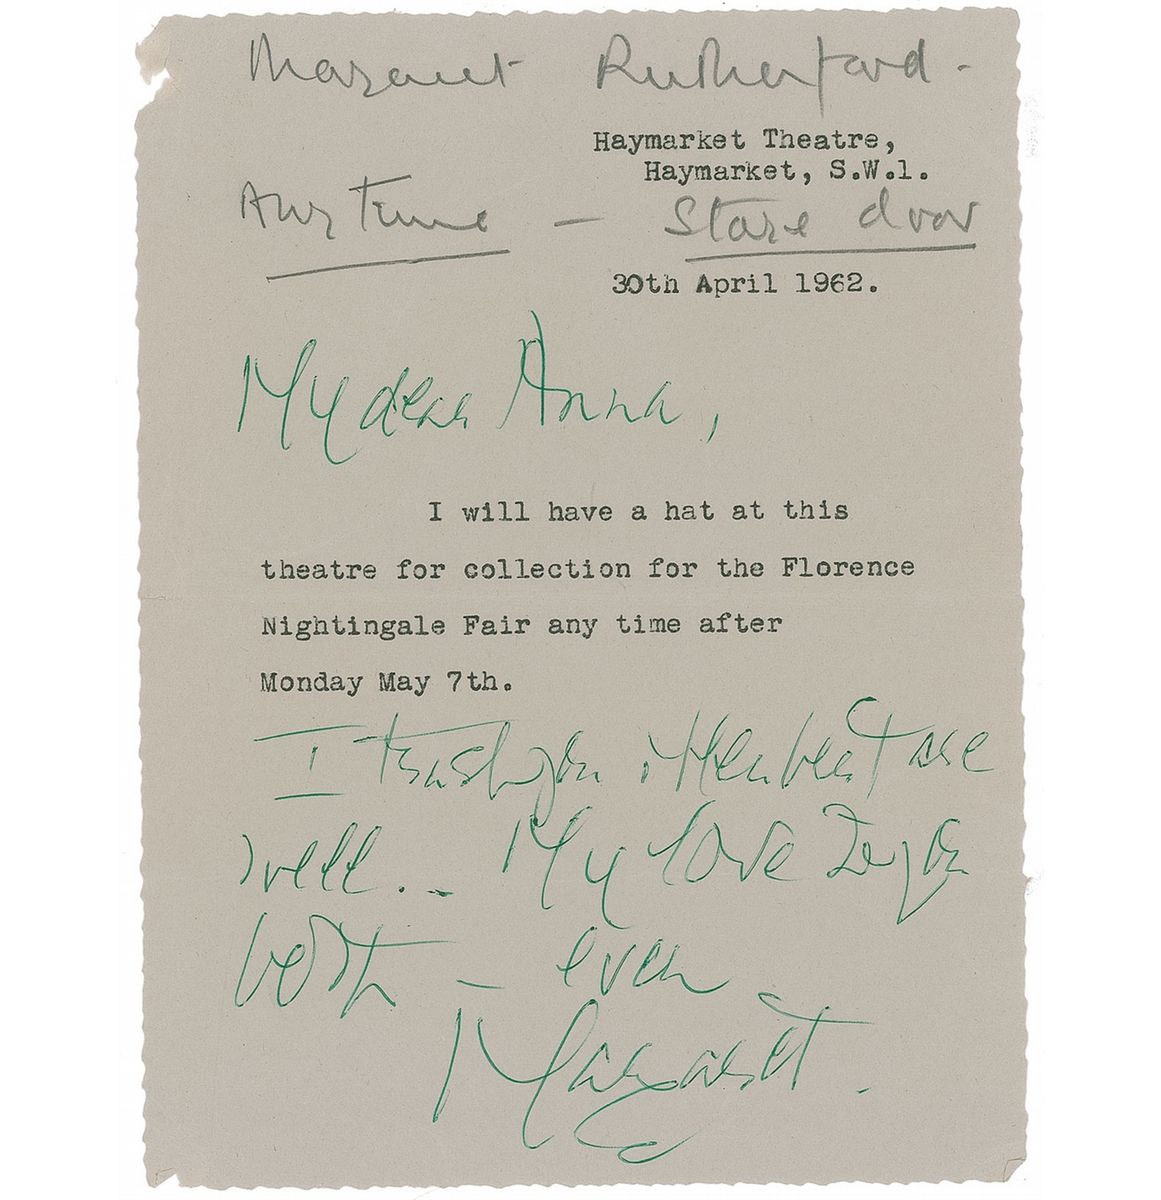 Margaret Rutherford -
Haymarket Theatre,
Haymarket, S.W.1.
Any time - Stage door
30th April 1962.
My dear Anna,
I will have a hat at this
theatre for collection for the Florence
Nightingale Fair any time after
Monday May 7th.
I trust you & Herbert are
well.. My love to you
both - ever
Margaret.